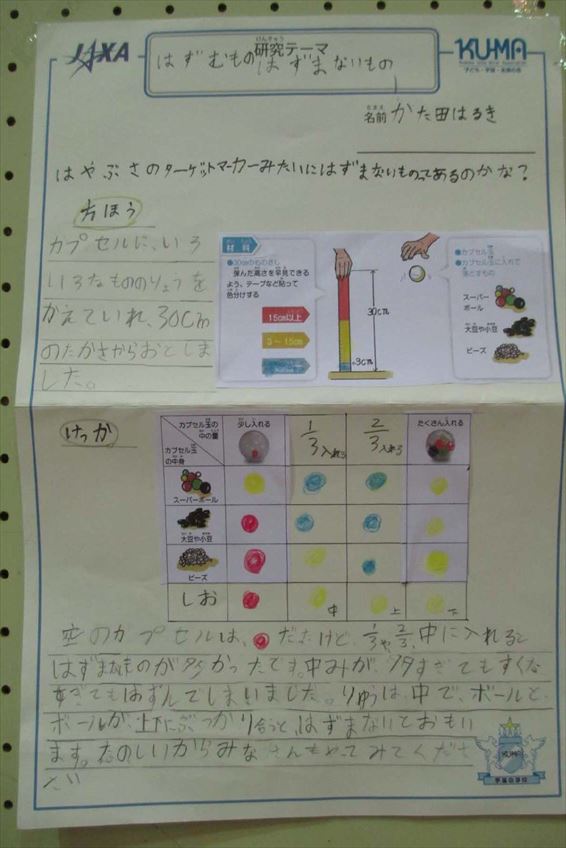 JAXA
けんきゅう
研究テーマ
はずむもの はずまないもの
KU-MA
子ども・宇宙・未来の会
なまえ
名前 かた田はるき
はやぶさのターゲットマーカーみたいにはずまないものってあるのかな?
方ほう
カプセルに、いろ
いろなもののりょうを
かえていれ、30cm
のたかさからおとしま
した。
材料
●30cmのものさし
弾んだ高さを早見できる
よう、テープなど貼って
色分けする
15cm以上
3〜15cm
30cm
3cm
●カプセル玉
●カプセル玉に入れて
落とすもの
スーパー
ボール
大豆や小豆
ビーズ
けっか
カプセル玉の
中の量
カプセル玉
の中身
少し入れる
1/3入れる
2/3入れる
たくさん入れる
スーパーボール
大豆や小豆
ビーズ
しお
中
上
下
空のカプセルは、だったけど、1/3や2/3、中に入れると
はずまないものが多かったです。中みが、多すぎてもすくな
すぎてもはずんでしまいました。りゆうは、中で、ボールと
ボールが、上下にぶつかり合うと、はずまないとおもい
ます。たのしいからみなさんもやってみてくださ
い
KU-MA
宇宙の学校